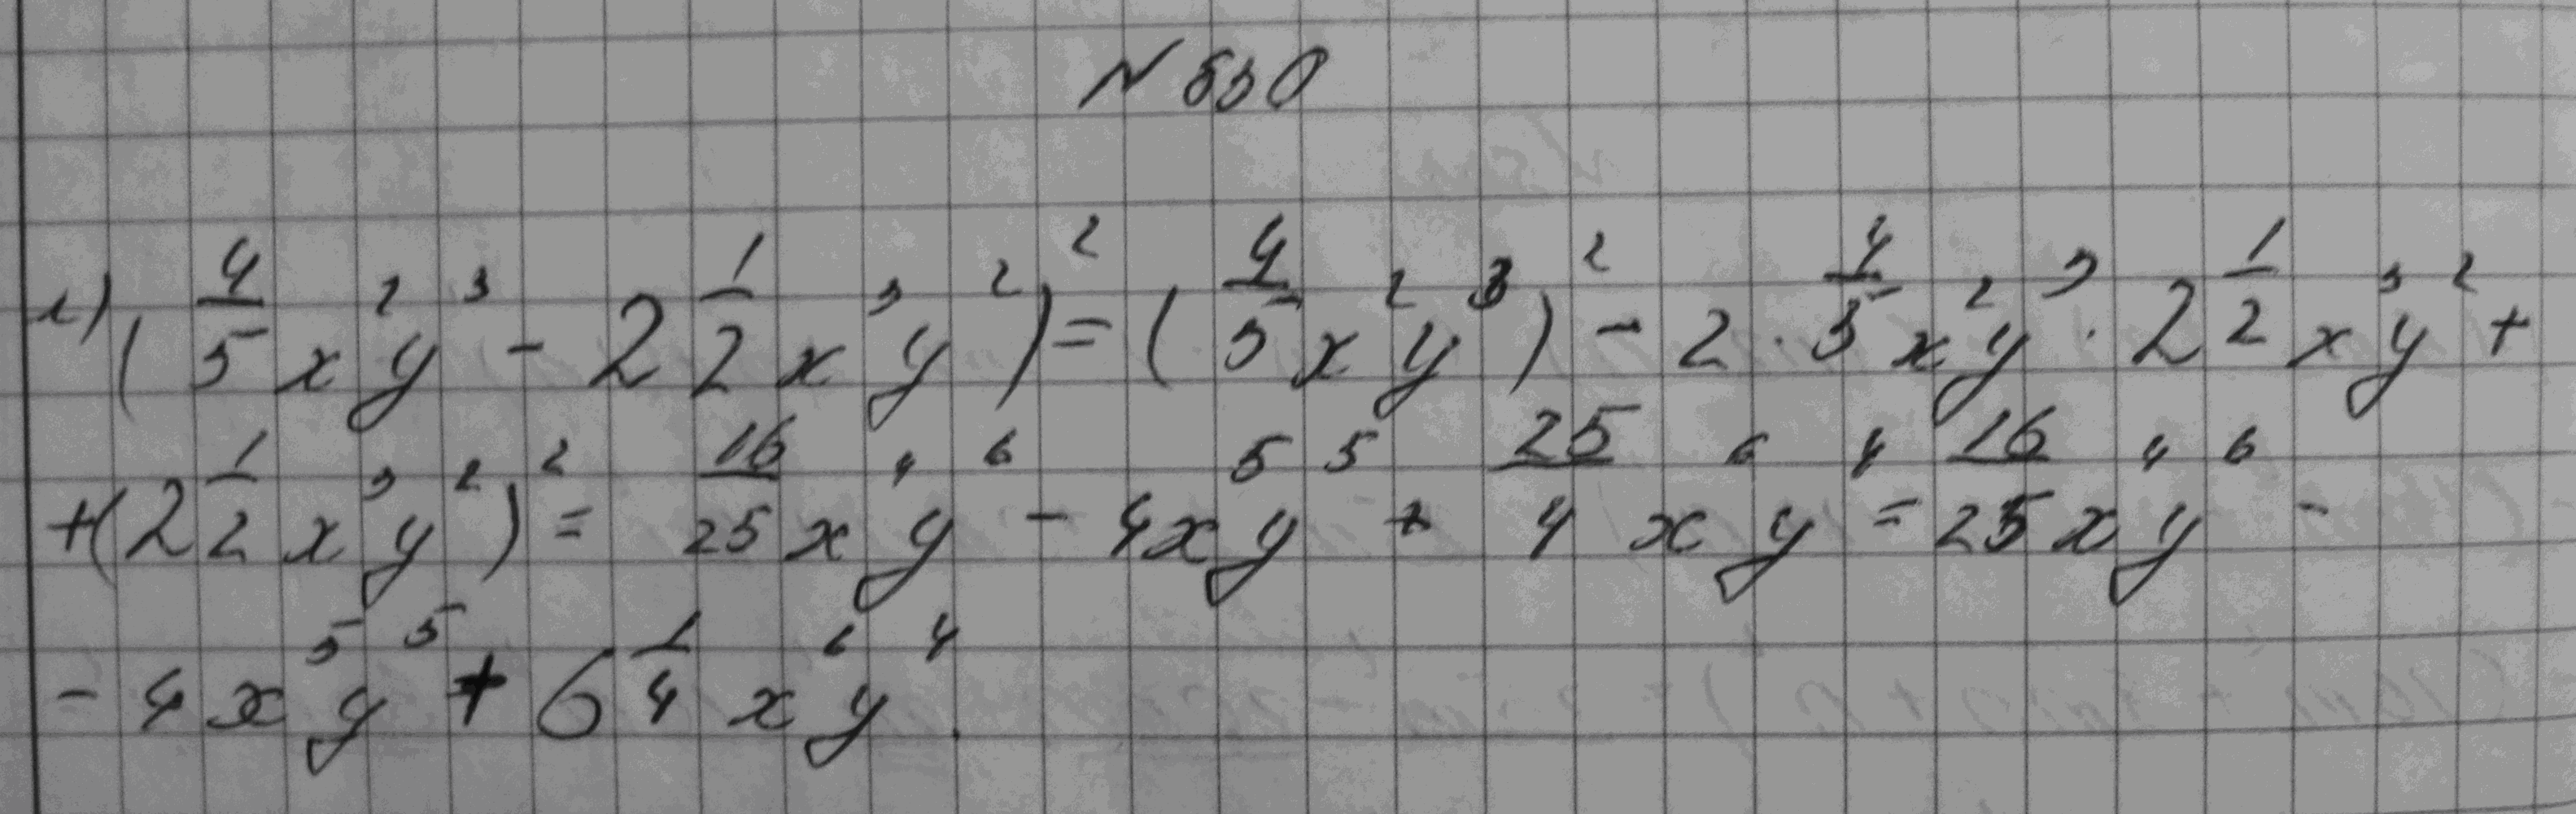 N 530
г) (4/5 x²y³ - 2 1/2 x³y²)² = (4/5 x²y³)² - 2 · 4/5 x²y³ · 2 1/2 x³y² +
+ (2 1/2 x³y²)² = 16/25 x⁴y⁶ - 4x⁵y⁵ + 25/4 x⁶y⁴ = 16/25 x⁴y⁶ -
- 4x⁵y⁵ + 6 1/4 x⁶y⁴.